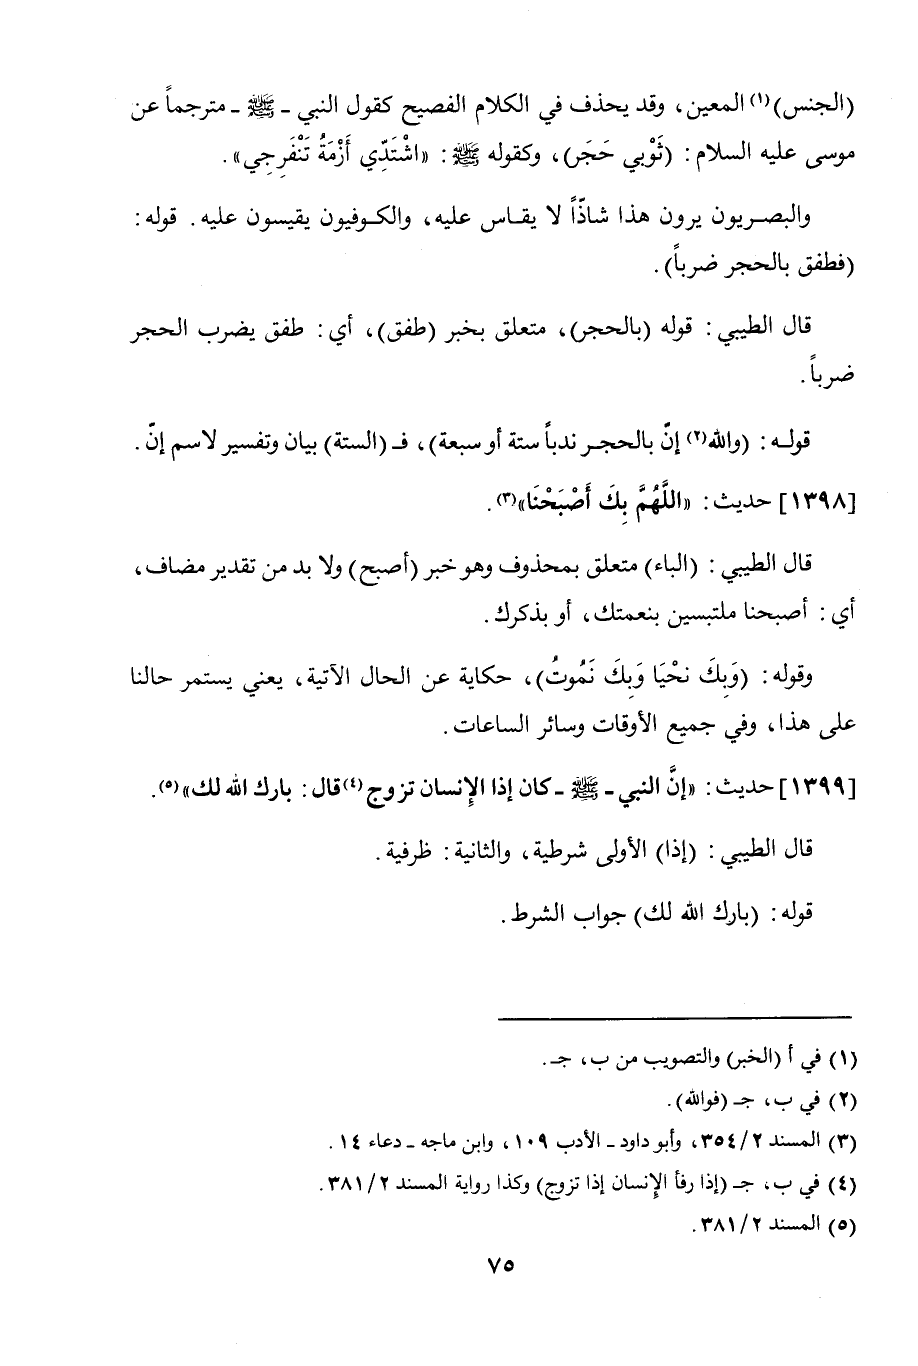 (الجنس)(١) المعين، وقد يحذف في الكلام الفصيح كقول النبي ـ ﷺ ـ مترجماً عن
موسى عليه السلام: (ثَوْبي حَجَر)، وكقوله ﷺ: «اشْتَدِّي أَزْمَةُ تَنْفَرِجي».
والبصريون يرون هذا شاذّاً لا يقاس عليه، والكوفيون يقيسون عليه. قوله:
(فطفق بالحجر ضرباً).
قال الطيبي: قوله (بالحجر)، متعلق بخبر (طفق)، أي: طفق يضرب الحجر
ضرباً.
قوله: (والله(٢) إنّ بالحجر ندباً ستة أو سبعة)، فـ (الستة) بيان وتفسير لاسم إنّ.
[١٣٩٨] حديث: «اللَّهُمَّ بِكَ أَصْبَحْنَا»(٣).
قال الطيبي: (الباء) متعلق بمحذوف وهو خبر (أصبح) ولا بد من تقدير مضاف،
أي: أصبحنا ملتبسين بنعمتك، أو بذكرك.
وقوله: (وَبِكَ نحْيَا وَبِكَ نَمُوتُ)، حكاية عن الحال الآتية، يعني يستمر حالنا
على هذا، وفي جميع الأوقات وسائر الساعات.
[١٣٩٩] حديث: «إنَّ النبي ـ ﷺ ـ كان إذا الإنسان تزوج(٤) قال: بارك الله لك»(٥).
قال الطيبي: (إذا) الأولى شرطية، والثانية: ظرفية.
قوله: (بارك الله لك) جواب الشرط.
(١) في أ (الخبر) والتصويب من ب، جـ.
(٢) في ب، جـ (فوالله).
(٣) المسند ٢/ ٣٥٤، وأبو داود ـ الأدب ١٠٩، وابن ماجه ـ دعاء ١٤.
(٤) في ب، جـ (إذا رفأ الإنسان إذا تزوج) وكذا رواية المسند ٢/ ٣٨١.
(٥) المسند ٢/ ٣٨١.
٧٥